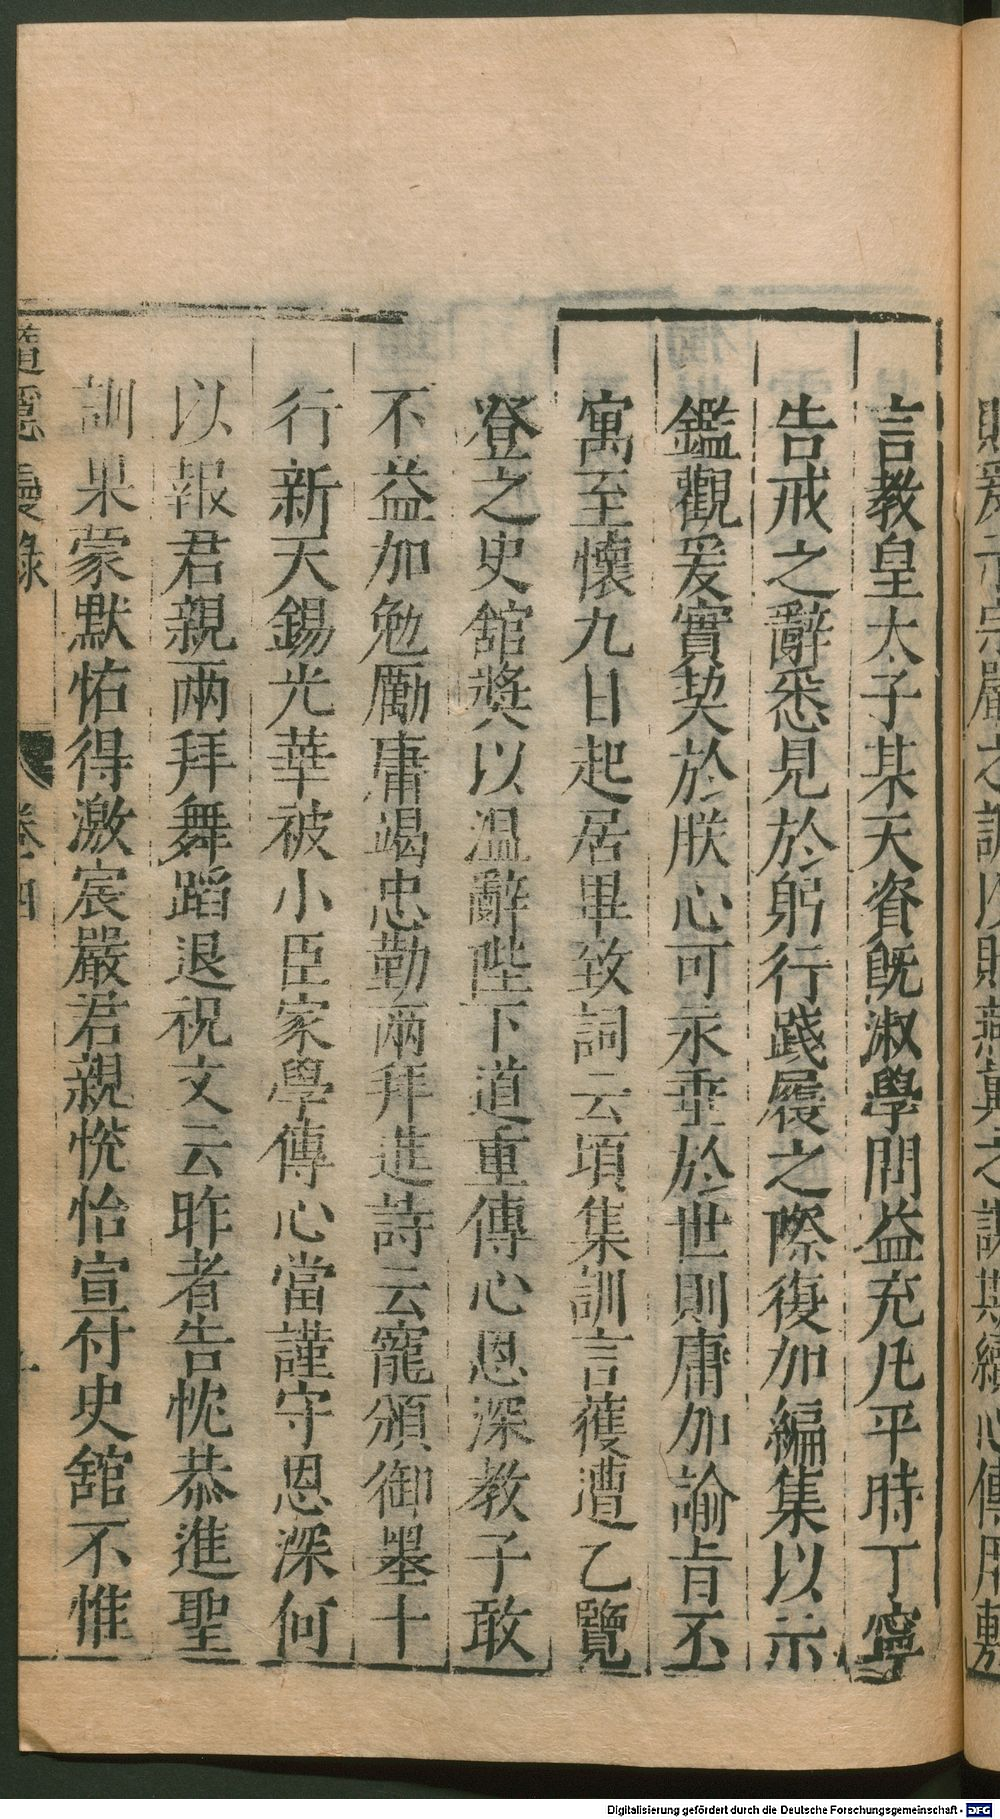 言教皇太子某天資旣淑學問益充凡平時丁寧
告戒之辭悉見於躬行踐履之際復加編集以示
鑑觀爰實契於朕心可永垂於世則庸加諭旨丕
寓至懷九日起居畢致詞云頃集訓言獲遭乙覽
登之史舘奬以温辭陛下道重傳心恩深教子敢
不益加勉厲庸竭忠勤兩拜進詩云寵頒御墨十
行新天錫光華被小臣家學傳心當謹守恩深何
以報君親兩拜舞蹈退祝文云昨者告忱恭進聖
訓果蒙默佑得激宸嚴君親恱怡宣付史舘不惟
隨隱漫錄 卷四
Digitalisierung gefördert durch die Deutsche Forschungsgemeinschaft - DFG